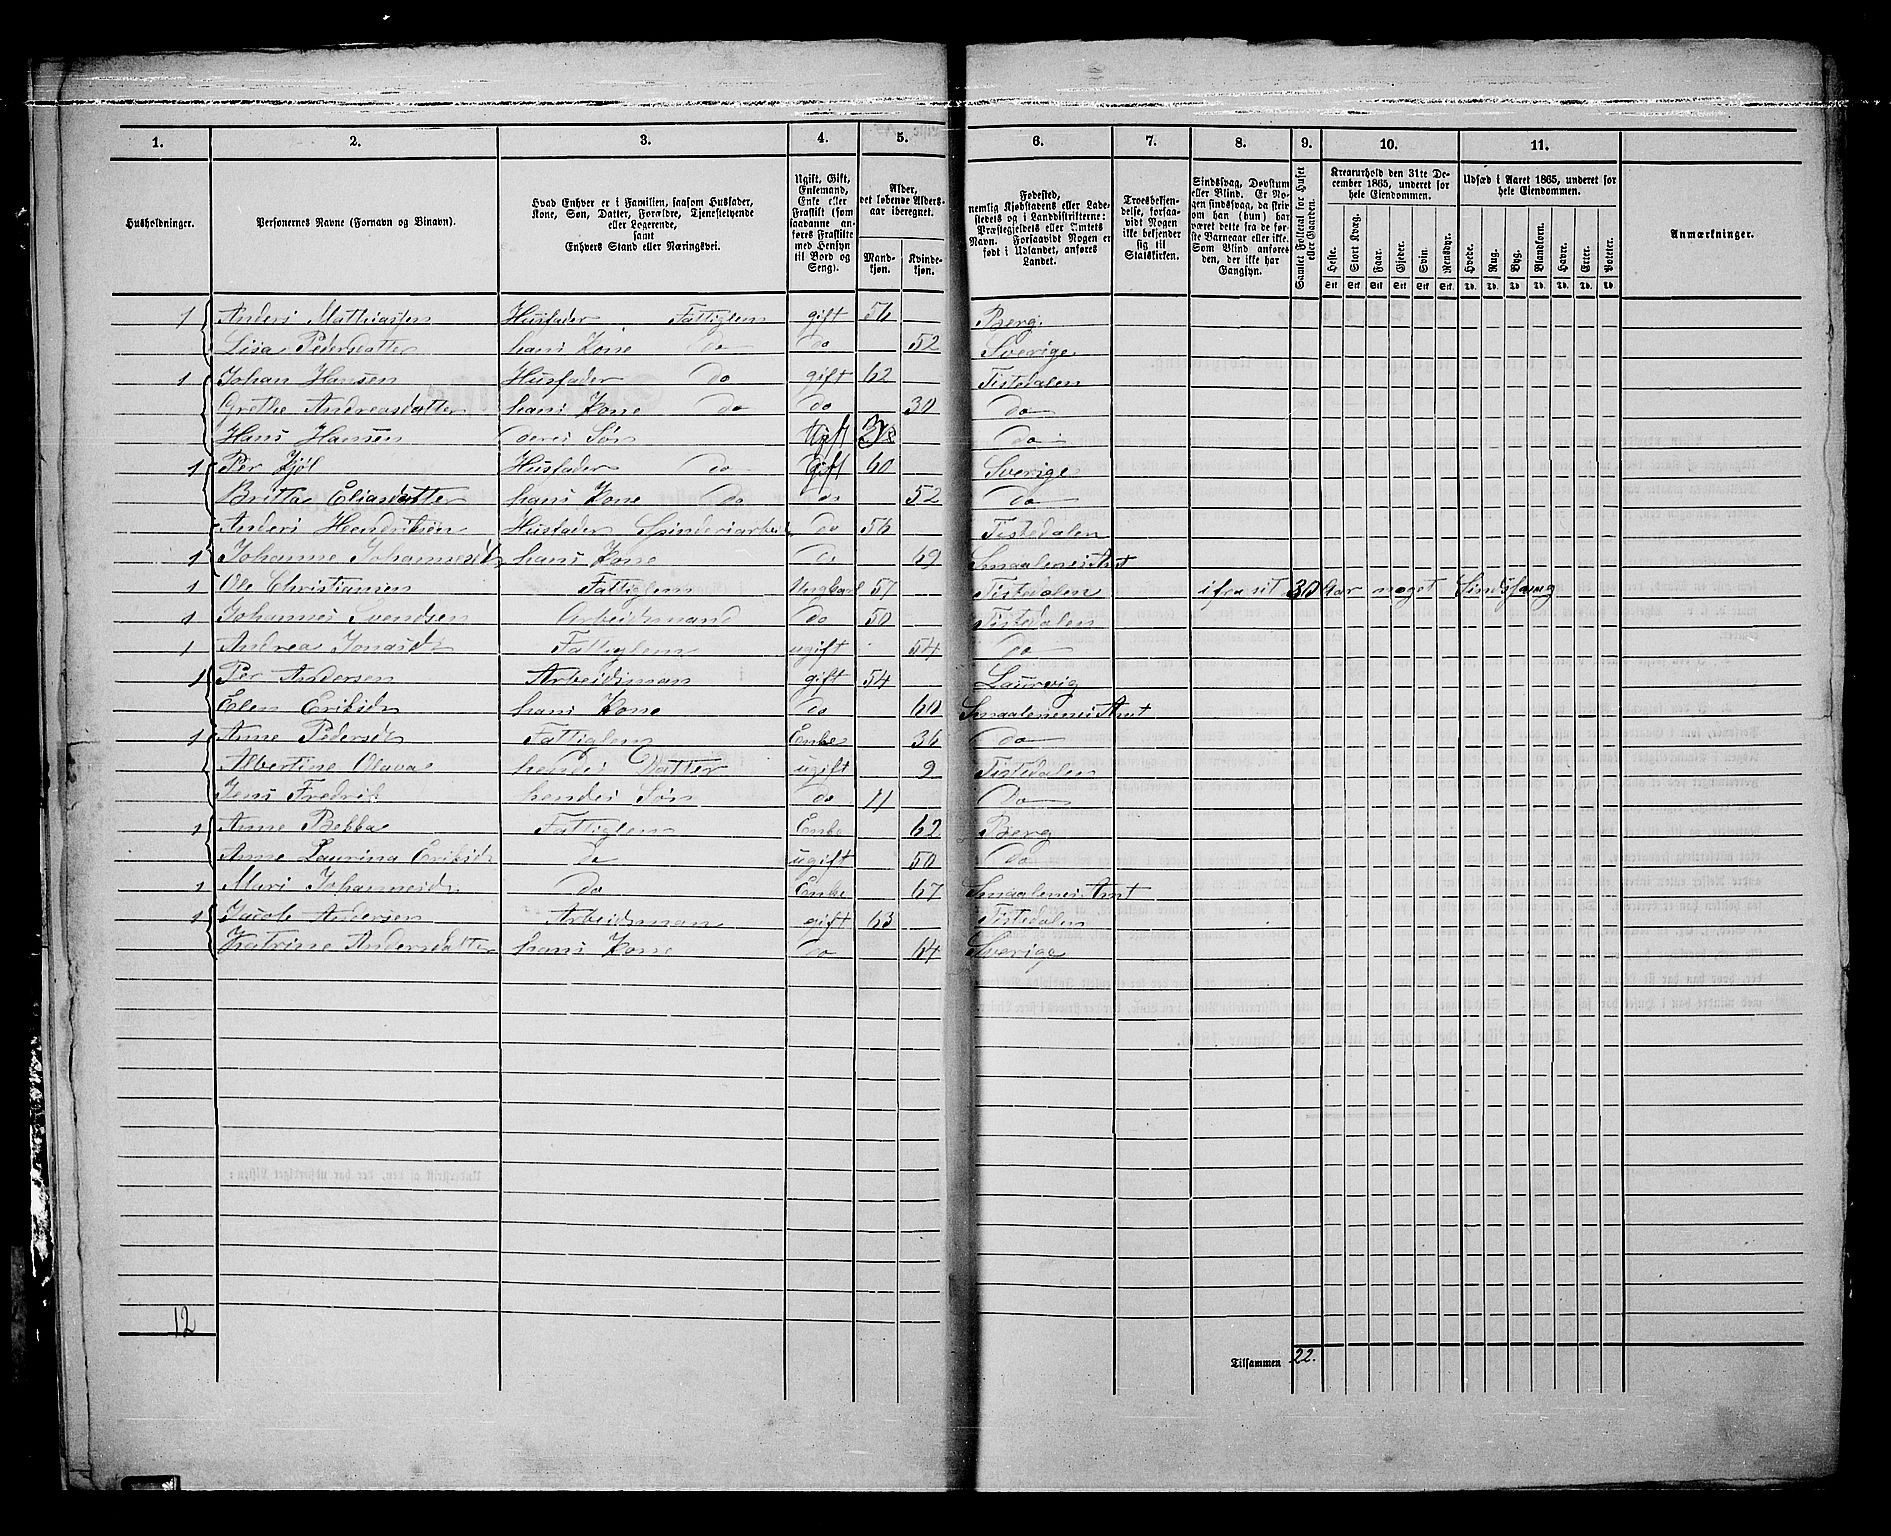 1. 2. 3. 4. 5. 6. 7. 8. 9. 10. 11.
Husholdninger.
Personernes Navne (Fornavn og Binavn).
Hvad Enhver er i Familien, saasom Husfader,
Kone, Søn, Datter, Forældre, Tjenestetyende
eller Logerende,
samt
Enhvers Stand eller Næringsvei.
Ugift, Gift,
Enkemand,
Enke eller
Fraskilt (som
saadanne an-
føres Fraskilte
med Hensyn
til Bord og
Seng).
Alder,
det løbende Alders-
aar iberegnet.
Mand-
kjøn.
Kvinde-
kjøn.
Fødested,
nemlig Kjøbstadens eller Lade-
stedets og i Landdistrikterne:
Præstegjeldets eller Amtets
Navn. Forsaavidt Nogen er
født i Udlandet, anføres
Landet.
Troesbekjen-
delse, forsaa-
vidt Nogen
ikke bekjender
sig til
Statskirken.
Sindssvag, Døvstum
eller Blind. Er No-
gen sindssvag, da skriv
om han (hun) har
været dette fra de før-
ste Barneaar eller ikke.
Som Blind anføres
den, der ikke har
Gangsyn.
Samlet Folketal for Huset
eller Gaarden.
Kreaturhold den 31te De-
cember 1865, underet for
hele Eiendommen.
Heste. Stort Kvæg. Faar. Gjeder. Svin. Rensdyr.
Stk Stk Stk Stk Stk Stk.
Udsæd i Aaret 1865, underet for
hele Eiendommen.
Hvede. Rug. Byg. Blandkorn. Havre. Erter. Poteter.
Td. Td. Td. Td. Td. Td. Td.
Anmærkninger.
1 Anders Mathiassen Husfader Fattiglem gift 56 Berg.
Lisa Pedersdatter hans Kone do do 52 Sverige
1 Johan Hansen Husfader do gift 62 Tistedalen
Grethe Andreasdatter hans Kone do do 30 do
Hans Hansen deres Søn do
1 Per Kjöl Husfader do gift 60 Sverige
Britta Eliasdatter hans Kone do do 52 do
Anders Hendriksen Husfader Spinderiarbeid do 56 Tistedalen
1 Johanne Johannesd hans Kone do 69 Smaalenes Amt
1 Ole Christiansen Fattiglem Ungkarl 57 Tistedalen ifra sit 30 Aar noget Sindssvag
1 Johannes Svendsen Arbeidsmand do 50 Tistedalen
1 Andrea Jonasd Fattiglem ugift 54 do
1 Per Andersen Arbeidsman gift 54 Laurvig
Elen Eriksd hans Kone do 60 Smaalenenes Amt
1 Anne Pedersd Fattiglem Enke 36 do
Albertine Olava hendes Datter ugift 9 Tistedalen
Jens Fredrik hendes Søn do 11 do
1 Anne Bekka Fattiglem Enke 62 Berg
Anne Laurina Eriksd do ugift 50 do
1 Mari Johannesd do Enke 67 Smaalenes Amt
1 Jacob Andersen Arbeidsman gift 63 Tistedalen
Katrine Andersdatter hans Kone do 64 Sverige
12
Tilsammen 22.